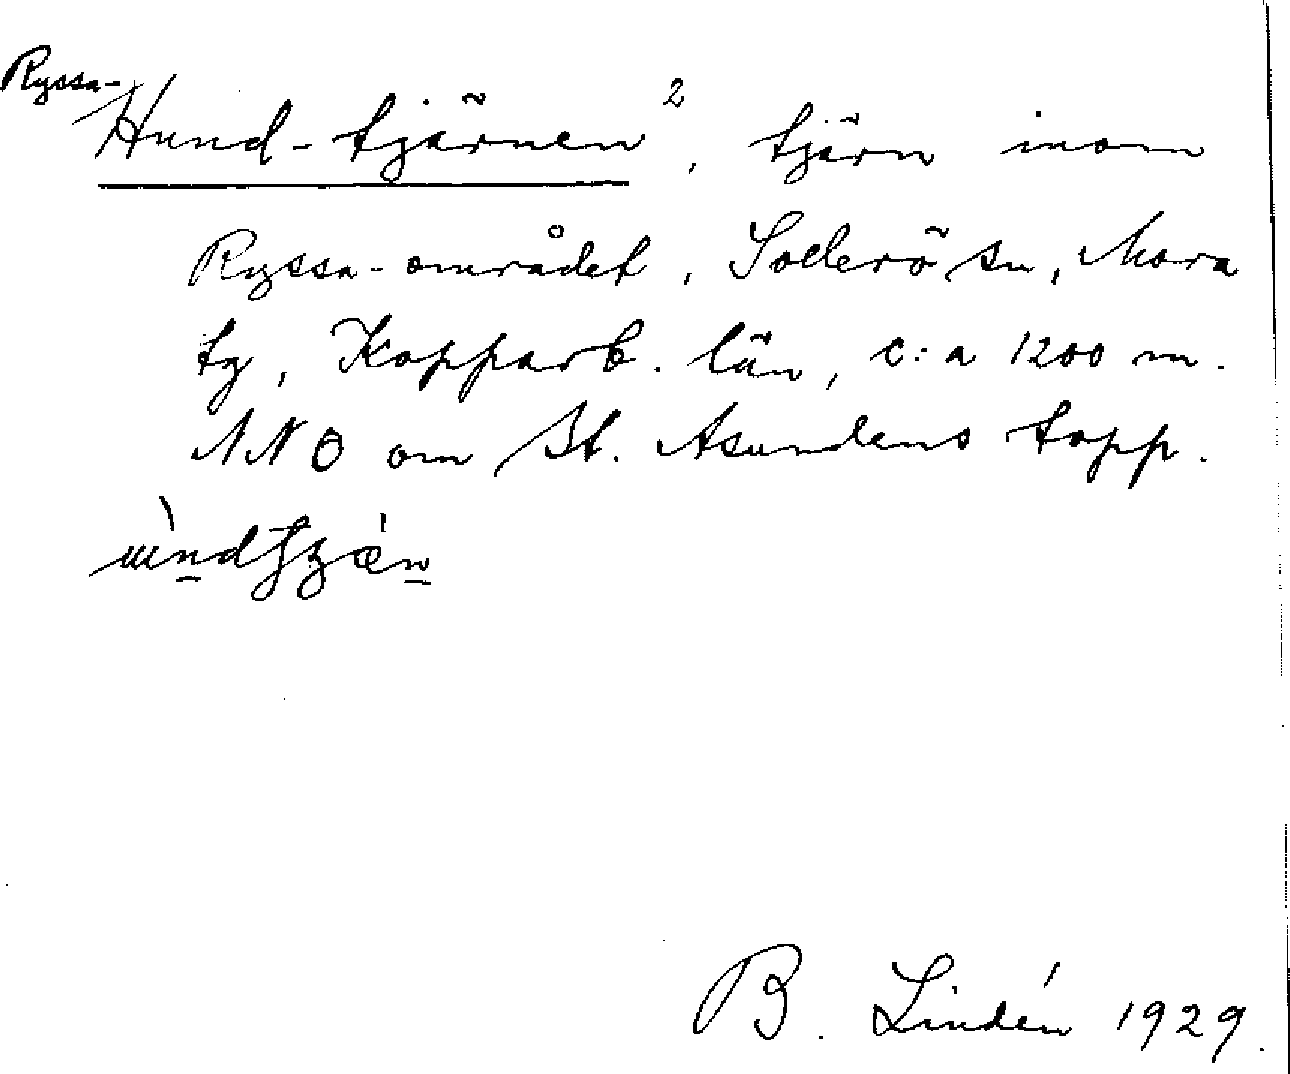 Ryssa-
Hund-tjärnen², tjärn inom
Ryssa-området, Sollerö sn, Mora
tg, Kopparb. län, c:a 1200 m.
NNO om St. Asundens topp.
B. Lindén 1929.